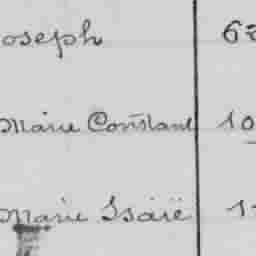 oseph 6
Marie Constant 10
Marie Isaïe 1